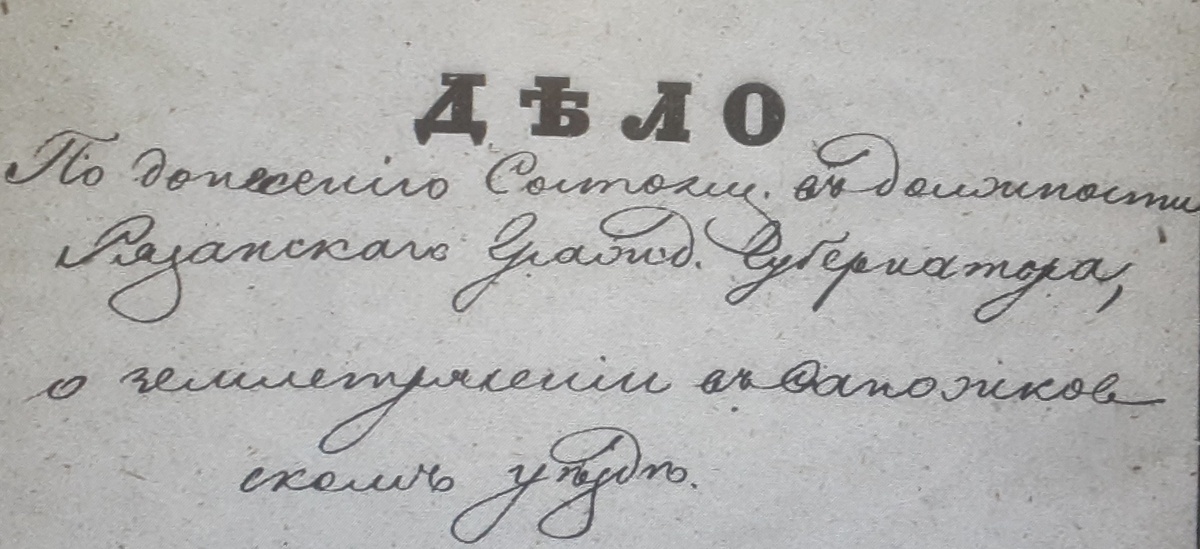 ДѢЛО
По донесенію Состоящ. въ должности
Рязанскаго Гражд. Губернатора,
о землетрясеніи въ Сапожков
скомъ уѣздѣ.